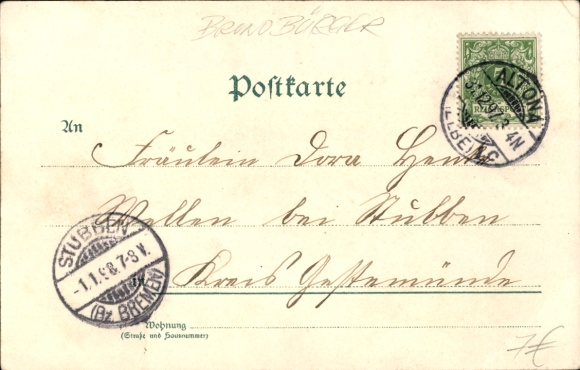 BRUNO BÜRGER
Postkarte
ALTONA
31.12.97. 3-4N
(ELBE) *c
An
Fräulein Dora
Wellen bei Stubben
STUBBEN
-1.1.98.7-8V.
(Bz. BREMEN)
in Kreis Gestemünde
Wohnung
(Straße und Hausnummer)
7€